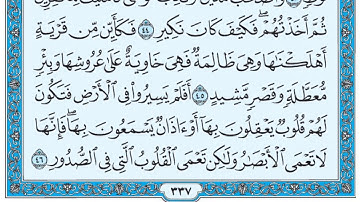 ثُمَّ أَخَذْتُهُمْ ۖ فَكَيْفَ كَانَ نَكِيرِ ٤٤ فَكَأَيِّن مِّن قَرْيَةٍ
أَهْلَكْنَٰهَا وَهِيَ ظَالِمَةٌ فَهِيَ خَاوِيَةٌ عَلَىٰ عُرُوشِهَا وَبِئْرٍ
مُّعَطَّلَةٍ وَقَصْرٍ مَّشِيدٍ ٤٥ أَفَلَمْ يَسِيرُوا۟ فِي ٱلْأَرْضِ فَتَكُونَ
لَهُمْ قُلُوبٌ يَعْقِلُونَ بِهَآ أَوْ ءَاذَانٌ يَسْمَعُونَ بِهَا ۖ فَإِنَّهَا
لَا تَعْمَى ٱلْأَبْصَٰرُ وَلَٰكِن تَعْمَى ٱلْقُلُوبُ ٱلَّتِي فِي ٱلصُّدُورِ ٤٦
٣٣٧